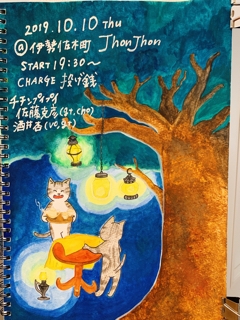 2019.10.10 Thu
@伊勢佐木町 JhonJhon
START 19:30〜
CHARGE 投げ銭
チチンプイプイ
佐藤克彦(gt,cho)
酒井杏(vo,gt)